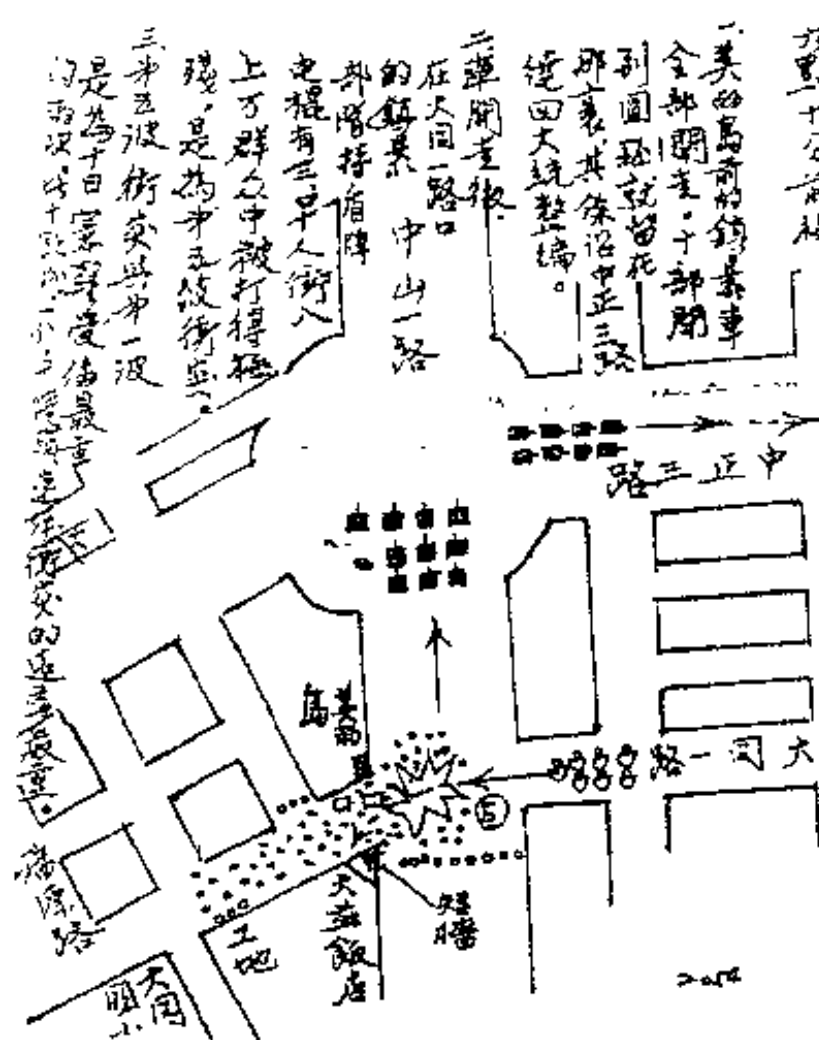 一、美的島前的鎮暴車
全部開走。十部開
到圓環就留在
那裏,其餘沿中正三路
繞回大統整編。
二、車開走後,
在大同一路口
的鎮暴
部隊持盾牌
电棍有三四十人衝入
上万群众中被打得極
殘。是為第五波衝突。
三、第五波衝突與第一波
是為十日憲警受傷最重
的兩次。
中山一路
中正三路
美麗
島
大同一路
⑤
矮牆
大益飯店
工地
瑞源路
大同
國小